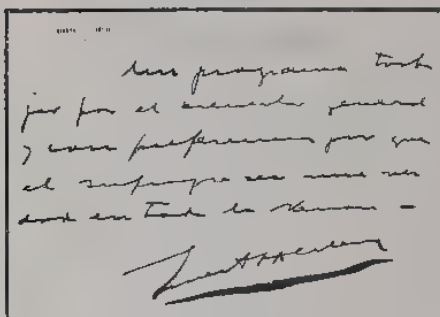 Un programa trab
por el bienestar general
y con preferencia por que
el sufragio sea una ver
dad en toda la